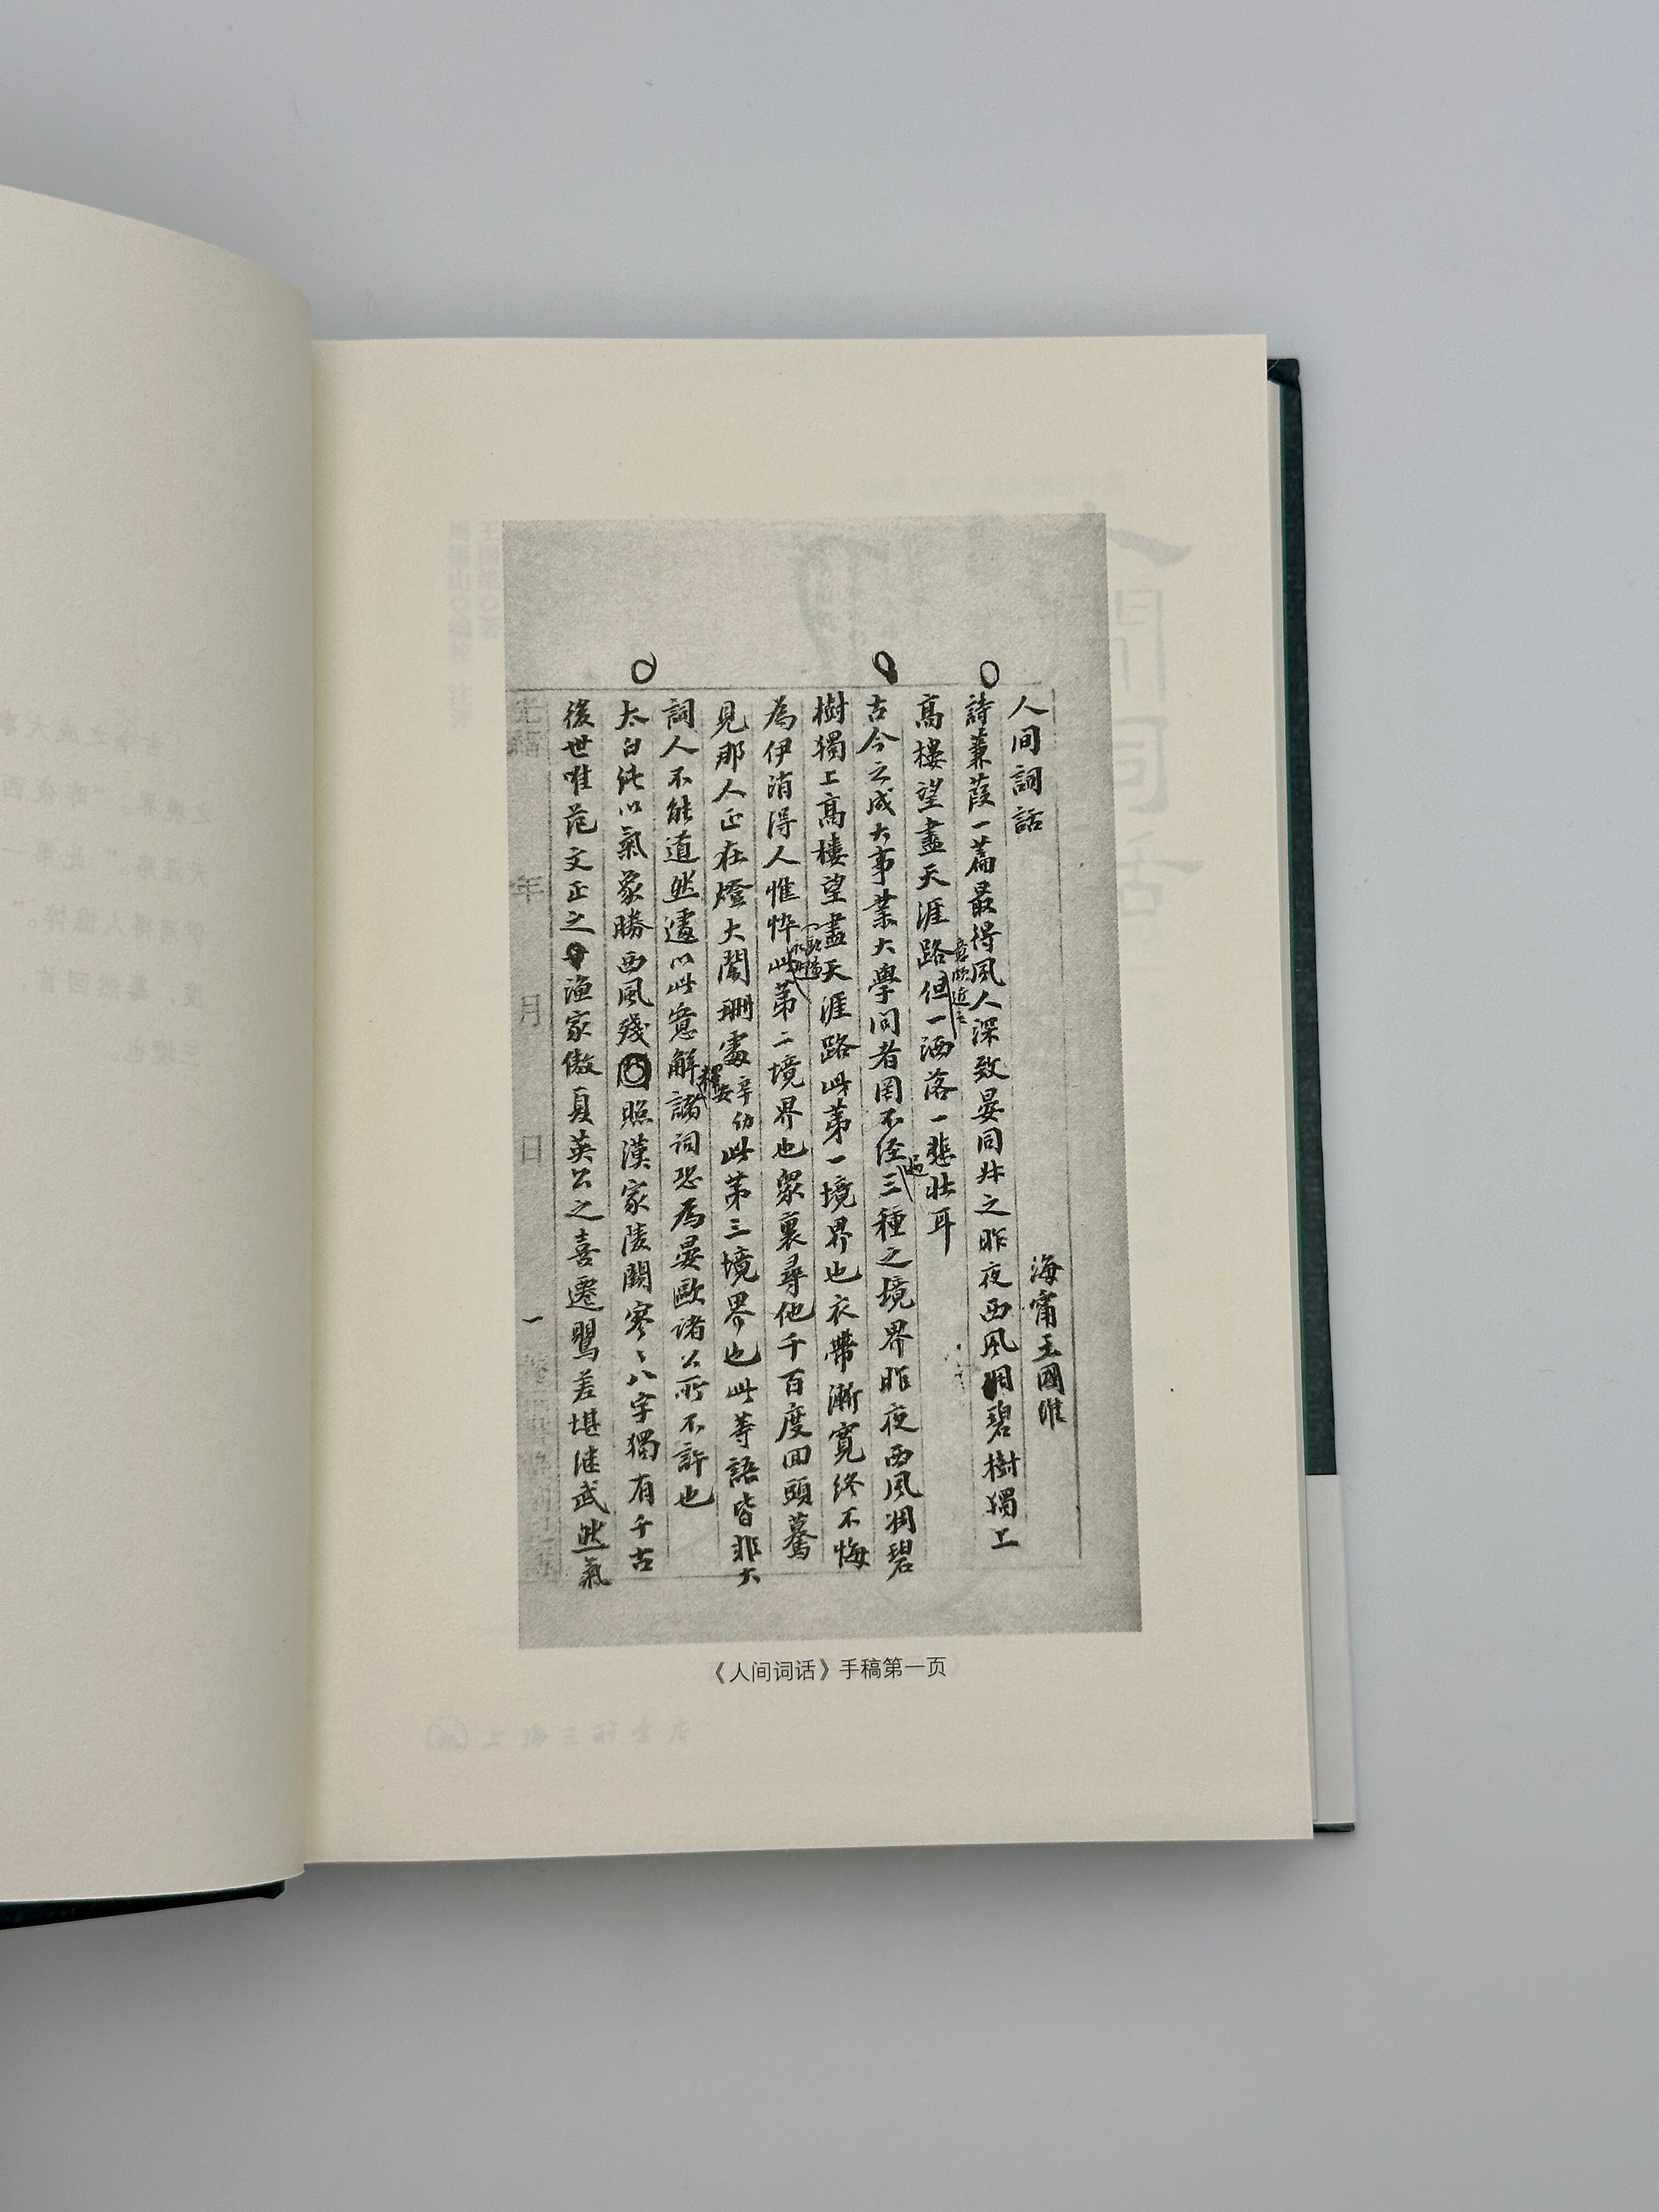 人间詞話
海甯王國維
詩蒹葭一篇最得風人深致晏同叔之昨夜西風凋碧樹獨上
高樓望盡天涯路意頗近之但一洒落一悲壯耳
古今之成大事業大學问者罔不経過三種之境界昨夜西风凋碧
樹獨上高樓望盡天涯路此第一境界也衣帶漸寬終不悔
為伊消得人憔悴此第二境界也眾裏尋他千百度回頭驀
見那人正在燈火闌珊處辛幼安此第三境界也此等語皆非大
詞人不能道然遽以此意解釋諸词恐為晏歐諸公所不許也
太白純以氣象勝西風殘照漢家陵闕寥〻八字獨有千古
後世唯范文正之漁家傲夏英公之喜遷鶯差堪継武然氣
年 月 日 一
《人间词话》手稿第一页